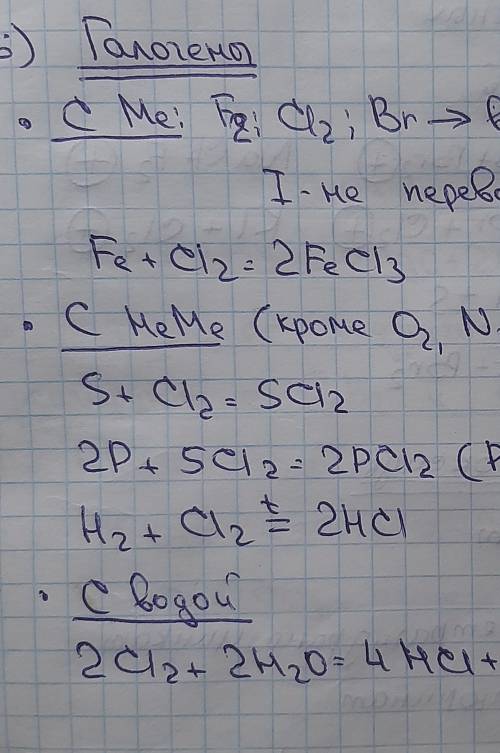 б) Галогены
• С Me: F2; Cl2; Br → в
I - не перево
Fe + Cl2 = 2FeCl3
• С НеMe (кроме O2, N
S + Cl2 = SCl2
2P + 5Cl2 = 2PCl2 (P
H2 + Cl2 t= 2HCl
• С водой
2Cl2 + 2H2O = 4HCl +